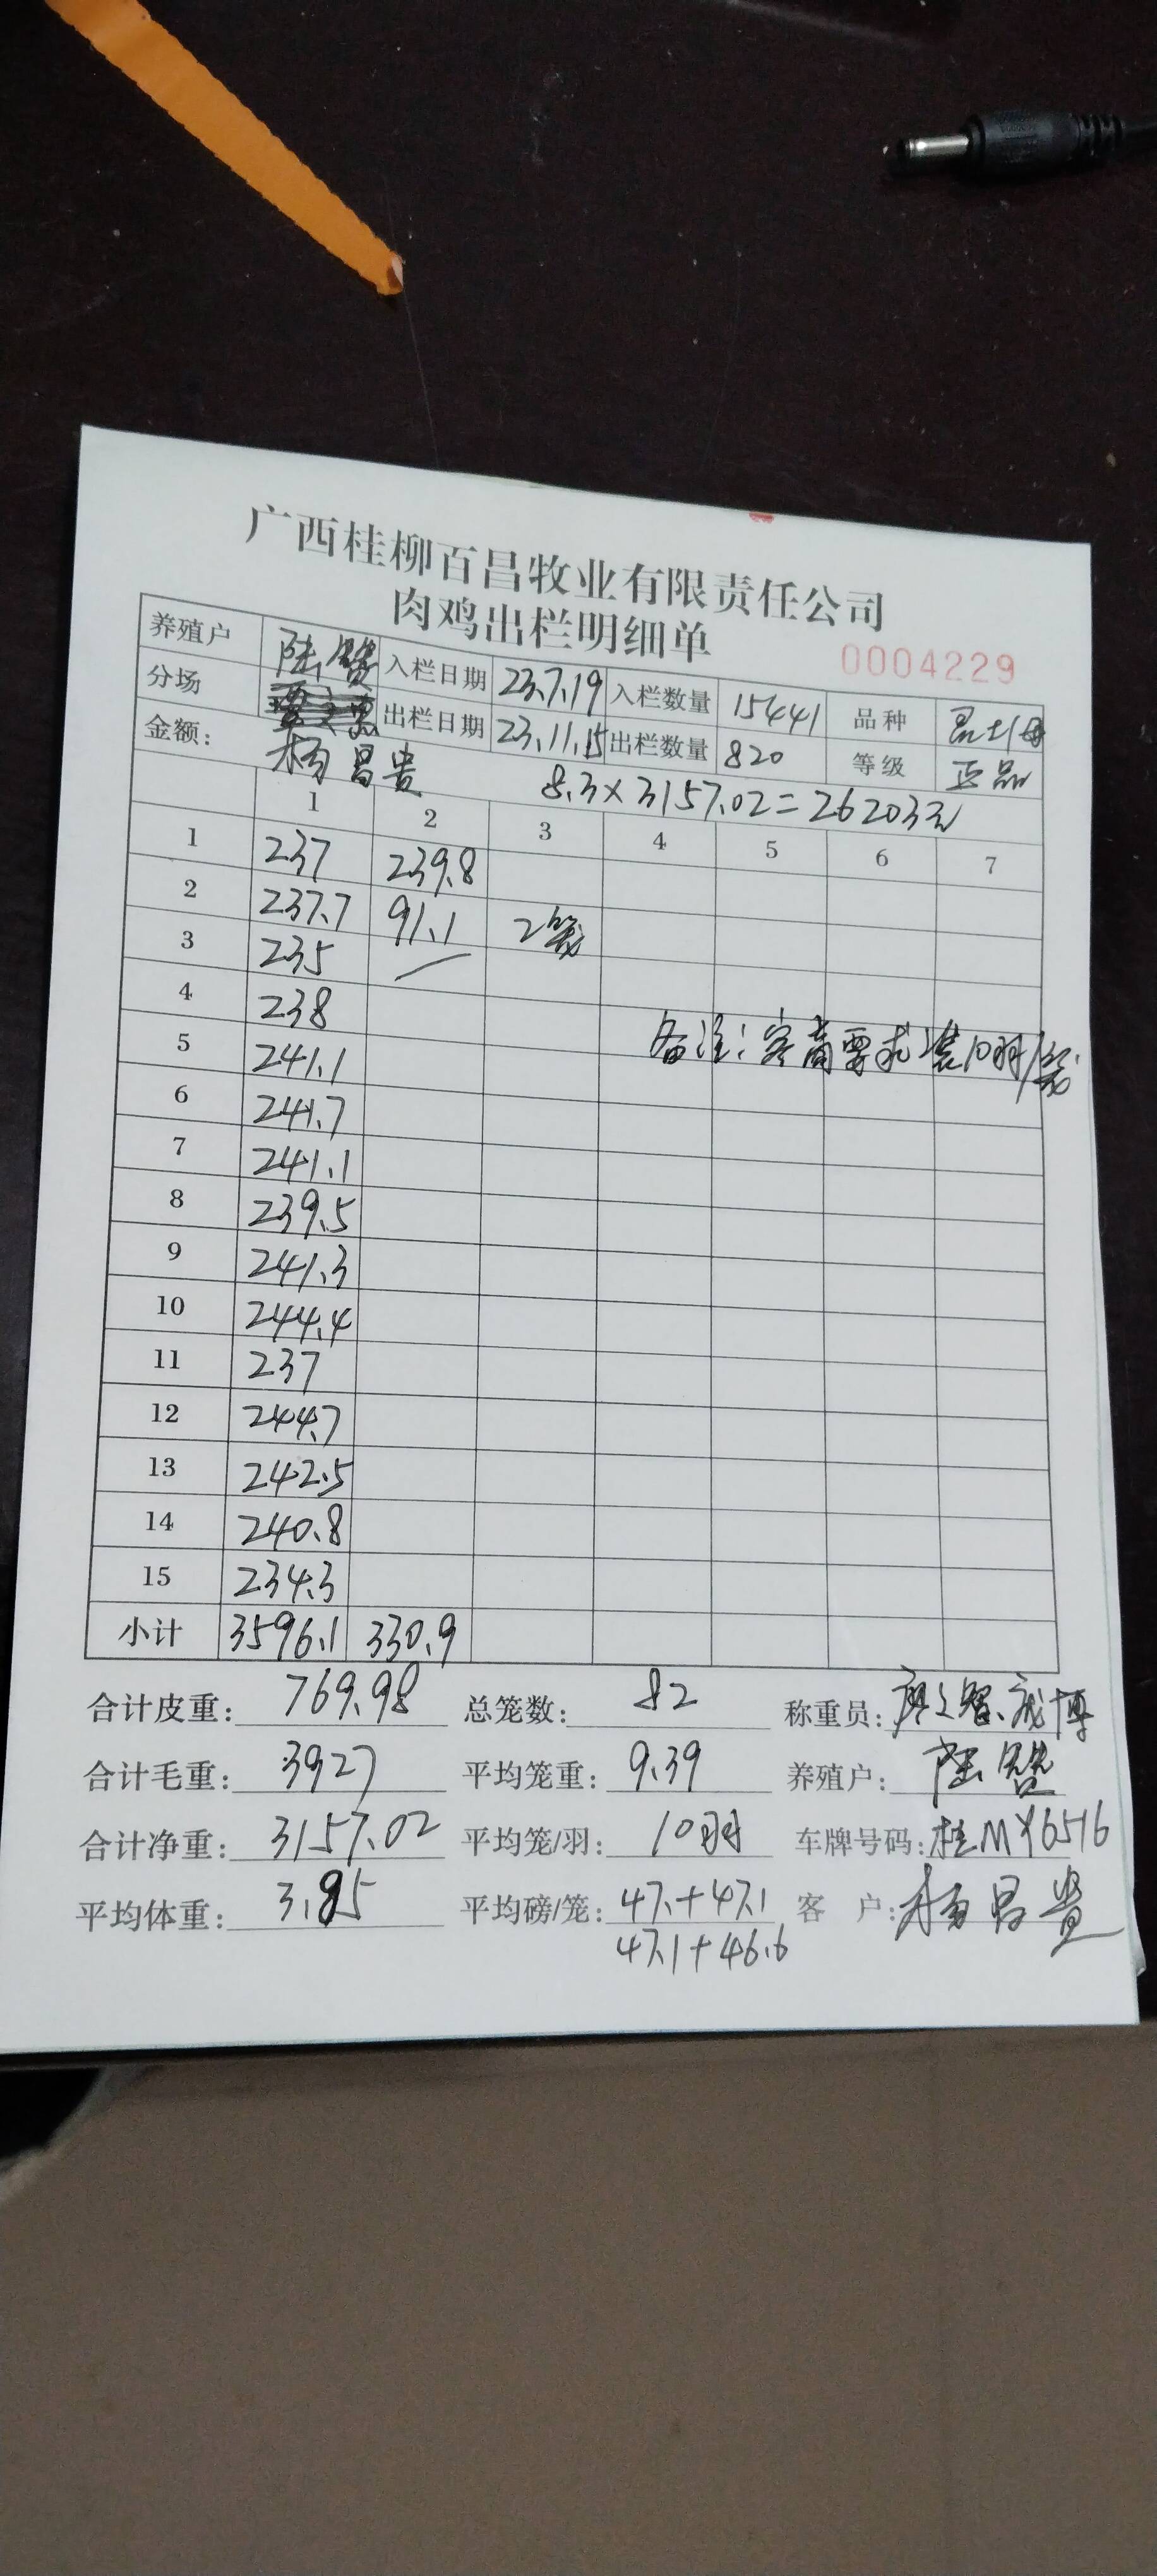 广西桂柳百昌牧业有限责任公司
肉鸡出栏明细单
0004229
养殖户 陆 入栏日期 23.7.19 入栏数量 15441 品种
分场 出栏日期 23.11.15 出栏数量 820 等级 正品
金额: 杨昌贵 8.3×3157.02=26203元
1 2 3 4 5 6 7
1 237 239.8
2 237.7 91.1 2笼
3 235
4 238
5 241.1 备注:客商要求装10羽/笼
6 241.7
7 241.1
8 239.5
9 241.3
10 244.4
11 237
12 244.7
13 242.5
14 240.8
15 234.3
小计 3596.1 330.9
合计皮重: 769.98 总笼数: 82 称重员:
合计毛重: 3927 平均笼重: 9.39 养殖户: 陆
合计净重: 3157.02 平均笼/羽: 10羽 车牌号码: 桂MY6516
平均体重: 3.85 平均磅/笼: 47.+47.1 客户: 杨昌贵
47.1+46.6